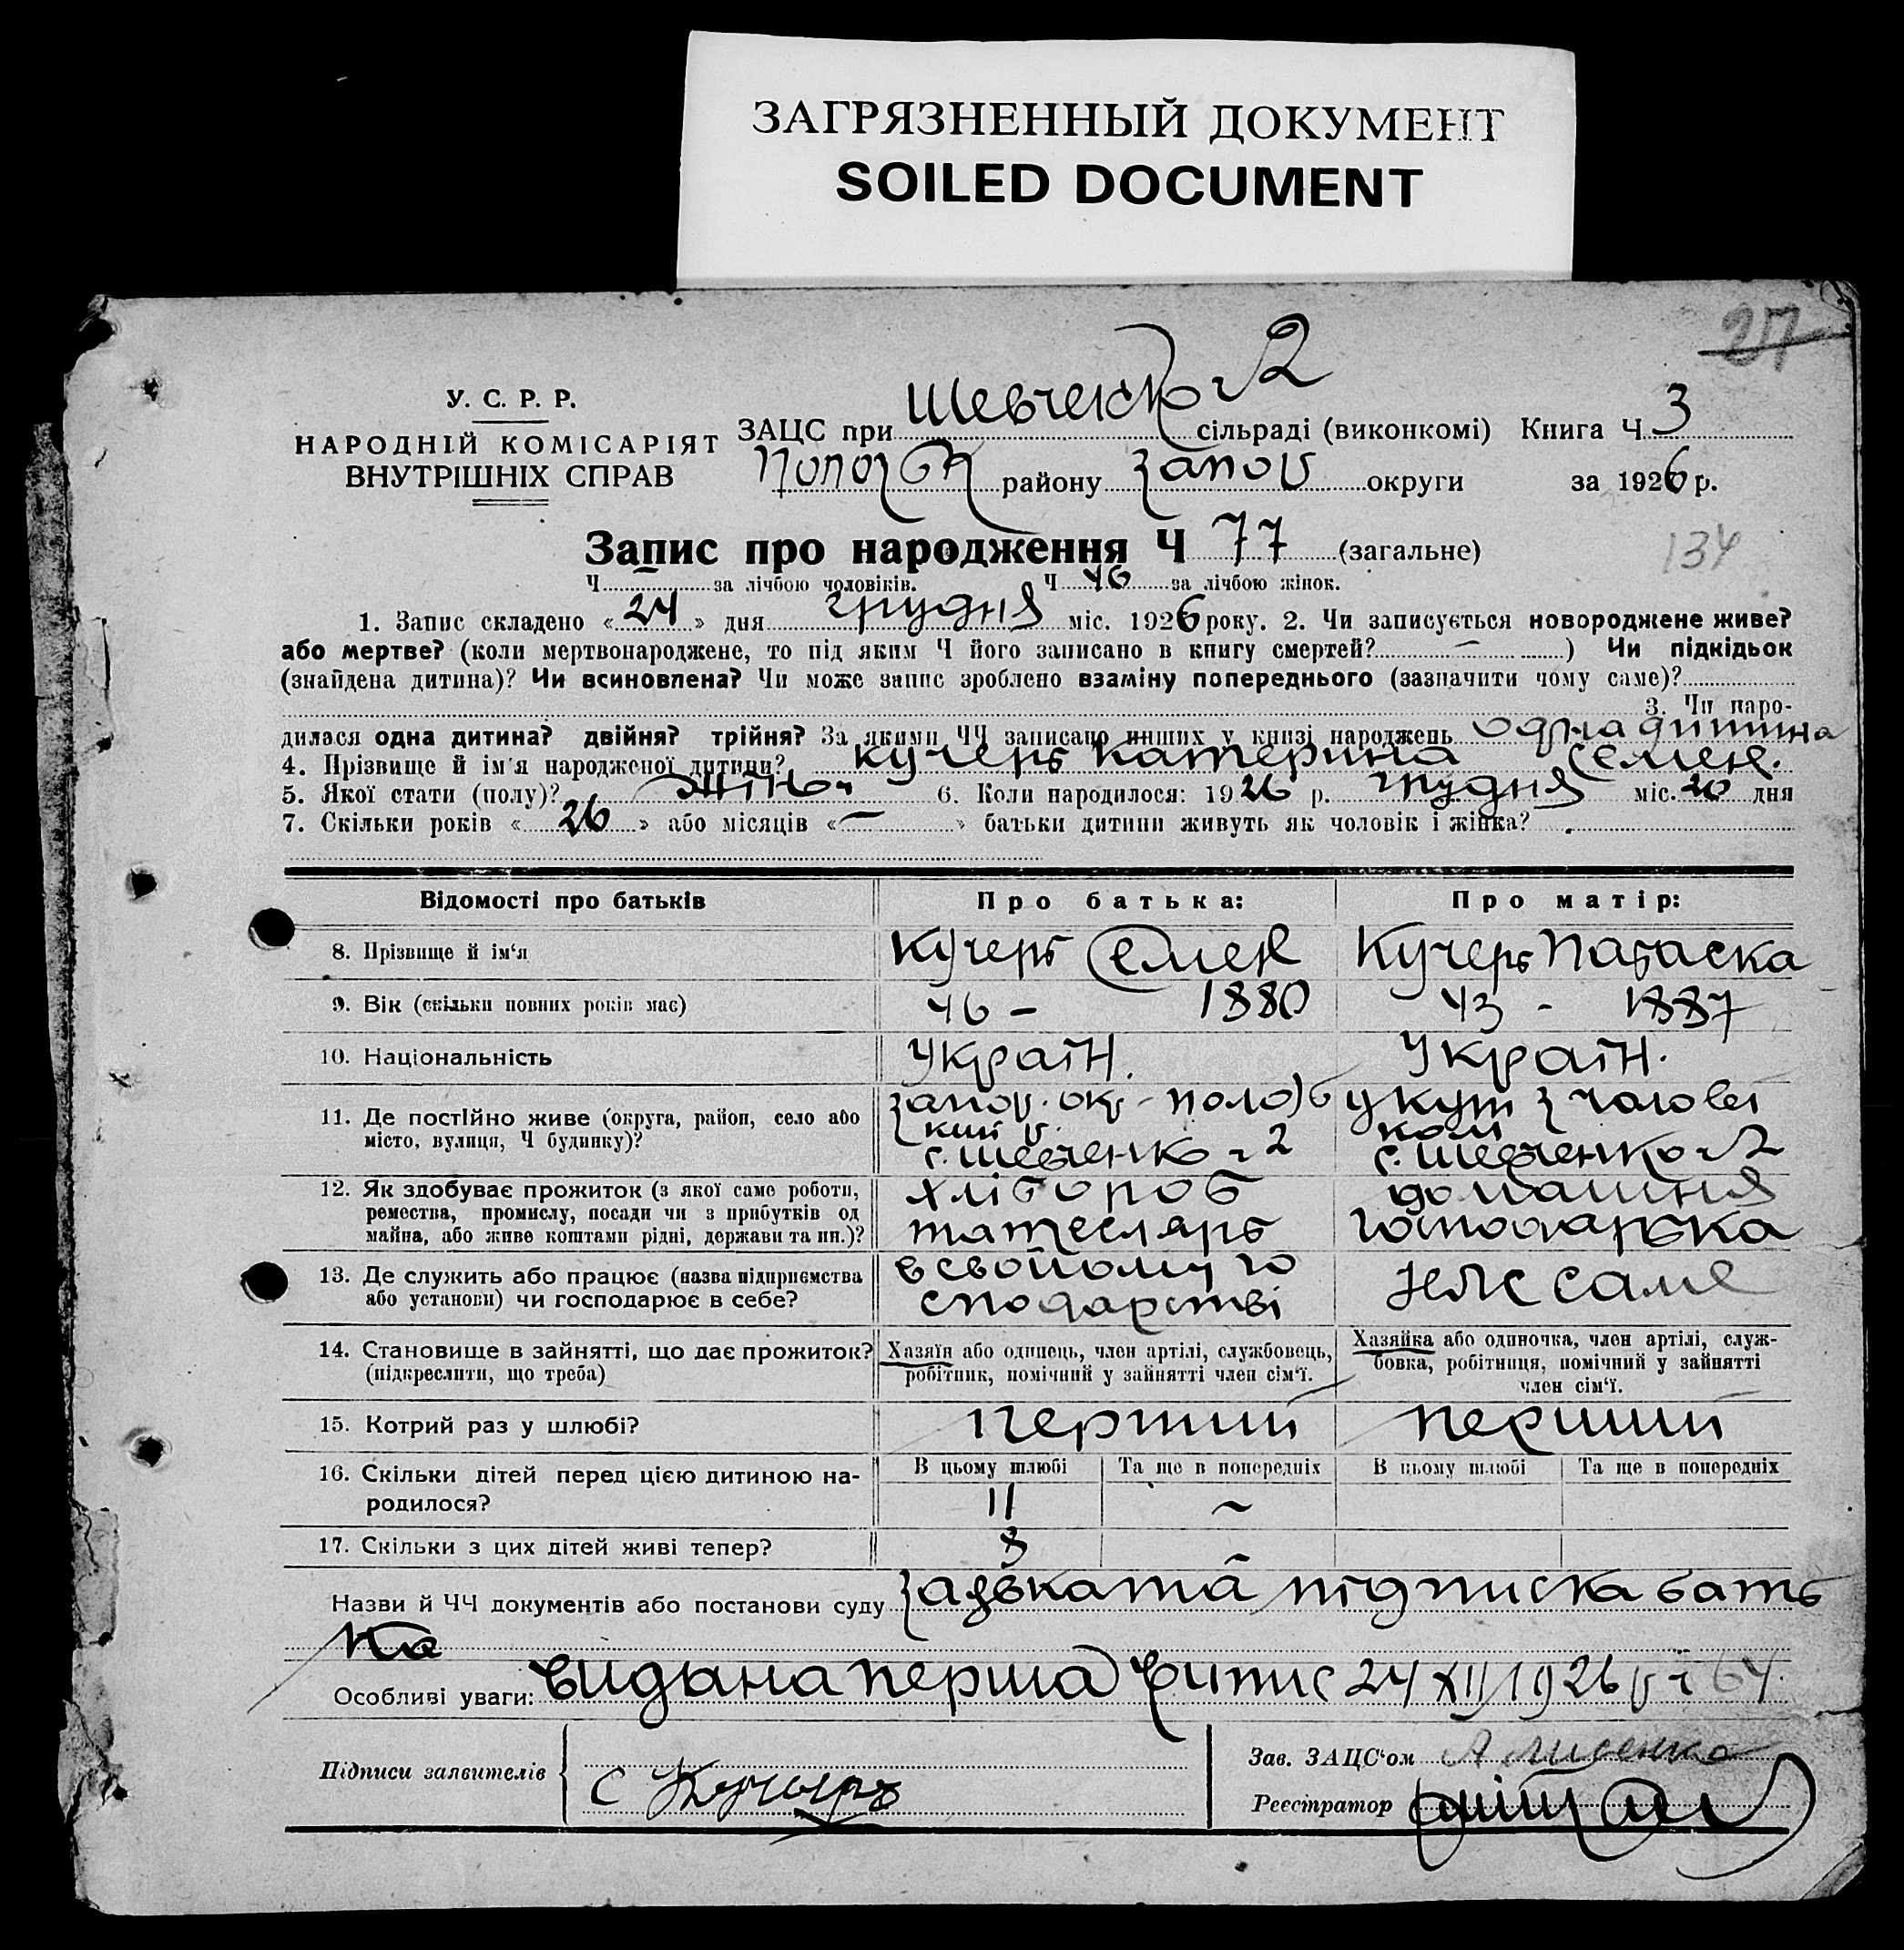 ЗАГРЯЗНЕННЫЙ ДОКУМЕНТ
SOILED DOCUMENT
27
У. С. Р. Р.
НАРОДНІЙ КОМІСАРІЯТ
ВНУТРІШНІХ СПРАВ
ЗАЦС при Шевченко 2 сільраді (виконкомі) Книга Ч 3
району Запор округи за 1926 р.
Запис про народження Ч 77 (загальне)
134
Ч за лічбою чоловіків. Ч 46 за лічбою жінок.
1. Запис складено « 24 » дня грудня міс. 1926 року. 2. Чи записується новороджене живе?
або мертве? (коли мертвонароджене, то під яким Ч його записано в книгу смертей? — ) Чи підкідьок
(знайдена дитина)? Чи всиновлена? Чи може запис зроблено взаміну попереднього (зазначити чому саме)?
3. Чи наро-
дилася одна дитина? двійня? трійня? За якими ЧЧ записано инших у книзі народжень одна дитина
4. Прізвище й ім'я народженої дитини? Кучерь Катерина Семен.
5. Якої стати (полу)? жіноч 6. Коли народилося: 1926 р. грудня міс. 20 дня
7. Скільки років « 26 » або місяців « — » батьки дитини живуть як чоловік і жінка?
Відомості про батьків Про батька: Про матір:
8. Прізвище й ім'я Кучерь Семен Кучерь Параска
9. Вік (скільки повних років має) 46 – 1880 43 - 1887
10. Національність Україн. Україн.
11. Де постійно живе (округа, район, село або Запор. окр - полог укуп з чолові
місто, вулиця, Ч будинку)? ком
с. Шевченко 2 с. Шевченко 2
12. Як здобуває прожиток (з якої саме роботи, хлібороб домашня
ремества, промислу, посади чи з прибутків од
майна, або живе коштами рідні, держави та ин.)? татеслярь господарька
13. Де служить або працює (назва підприємства в свойому го
або установи) чи господарює в себе? сподарстві
14. Становище в зайнятті, що дає прожиток? Хазяїн або одинець, член артілі, службовець, Хазяйка або одиночка, член артілі, служ-
(підкреслити, що треба) робітник, помічний у зайнятті член сім'ї. бовка, робітниця, помічний у зайнятті
член сім'ї.
15. Котрий раз у шлюбі? перший перший
16. Скільки дітей перед цією дитиною на- В цьому шлюбі Та ще в попередніх В цьому шлюбі Та ще в попередніх
родилося? 11 ~
17. Скільки з цих дітей живі тепер? 8 ~
Назви й ЧЧ документів або постанови суду підписка бать
ка
Особливі уваги: видана перша випис 24 XII 1926 р 64.
Підписи заявителів С Кучерь
Зав. ЗАЦС'ом А Лисенко
Реєстратор